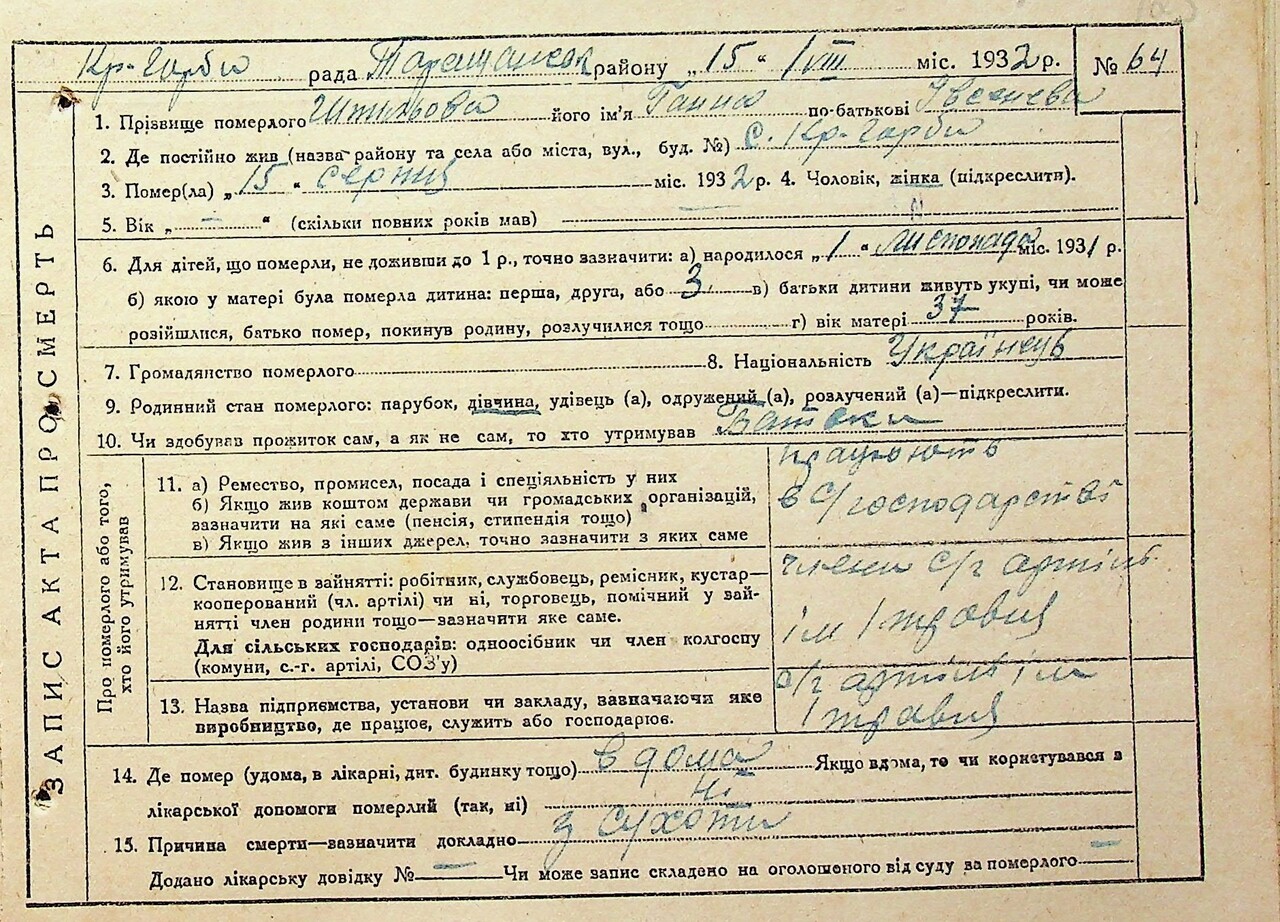 Кр-Гарби рада Таращанськ району „15“ VIII міс. 1932 р. № 64
ЗАПИС АКТА ПРО СМЕРТЬ
1. Прізвище померлого його ім'я Ганна по-батькові
2. Де постійно жив (назва району та села або міста, вул., буд. №) с. Кр-Гарби
3. Помер(ла) „15“ серпня міс. 1932 р. 4. Чоловік, жінка (підкреслити).
5. Вік „—“ (скільки повних років мав)
6. Для дітей, що померли, не доживши до 1 р., точно зазначити: а) народилося „1“ листопада міс. 1931 р.
б) якою у матері була померла дитина: перша, друга, або 3 в) батьки дитини живуть укупі, чи може
розійшлися, батько помер, покинув родину, розлучилися тощо г) вік матері 37 років.
7. Громадянство померлого 8. Національність Українців
9. Родинний стан померлого: парубок, дівчина, удівець (а), одружений (а), розлучений (а)—підкреслити.
10. Чи здобував прожиток сам, а як не сам, то хто утримував Батьки
Про померлого або того,
хто його утримував
11. а) Ремество, промисел, посада і спеціяльність у них
б) Якщо жив коштом держави чи громадських організацій,
зазначити на які саме (пенсія, стипендія тощо)
в) Якщо жив з інших джерел, точно зазначити з яких саме
працюють
в с/господарстві
12. Становище в зайнятті: робітник, службовець, ремісник, кустар—
кооперований (чл. артілі) чи ні, торговець, помічний у зай-
нятті член родини тощо—зазначити яке саме.
Для сільських господарів: одноосібник чи член колгоспу
(комуни, с.-г. артілі, СОЗ'у)
члени с/г артіль
ім 1 травня
13. Назва підприємства, установи чи закладу, зазначаючи яке
виробництво, де працює, служить або господарює.
с/г артіль ім
1 травня
14. Де помер (удома, в лікарні, дит. будинку тощо) в дома Якщо вдома, то чи користувався з
лікарської допомоги померлий (так, ні) ні
15. Причина смерти—зазначити докладно з сухоти
Додано лікарську довідку № — Чи може запис складено на оголошеного від суду за померлого —